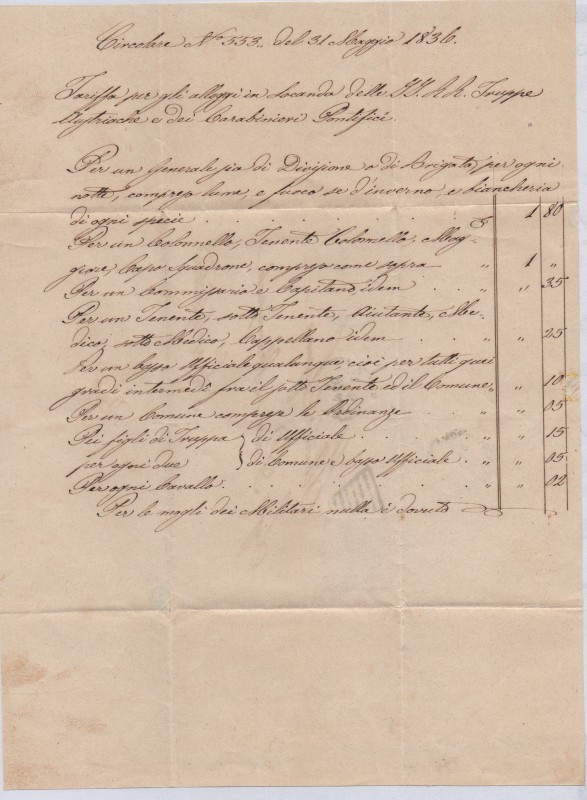 Circolare N.º 553. del 31 Maggio 1836.
Tariffa per gli alloggi in Locanda delle II. RR. Truppe
Austriache e dei Carabinieri Pontifici.
Per un Generale sia di Divisione o di Brigata, per ogni
notte, compreso lume, e fuoco se d'inverno, e biancheria
di ogni specie . . . . . . . 1 80
Per un Colonnello, Tenente Colonnello, Mag-
giore, Capo Squadrone, compreso come sopra „ 1 „
Per un Commissario e Capitano, idem . . „ „ 35
Per un Tenente, sotto Tenente, Aiutante, Me-
dico, sotto Medico, Cappellano idem . . . „ „ 25
Per un basso Ufficiale qualunque cioè per tutti quei
gradi intermedi fra il sotto Tenente ed il Comune „ „ 10
Per un Comune comprese le Ordinanze . . . „ „ 05
Pei figli di Truppa } di Ufficiale . . . . . „ „ 15
per ogni due } di Comune e basso Ufficiale . „ „ 05
Per ogni Cavallo . . . . . . . . . „ „ 02
Per le mogli dei Militari nulla è dovuto